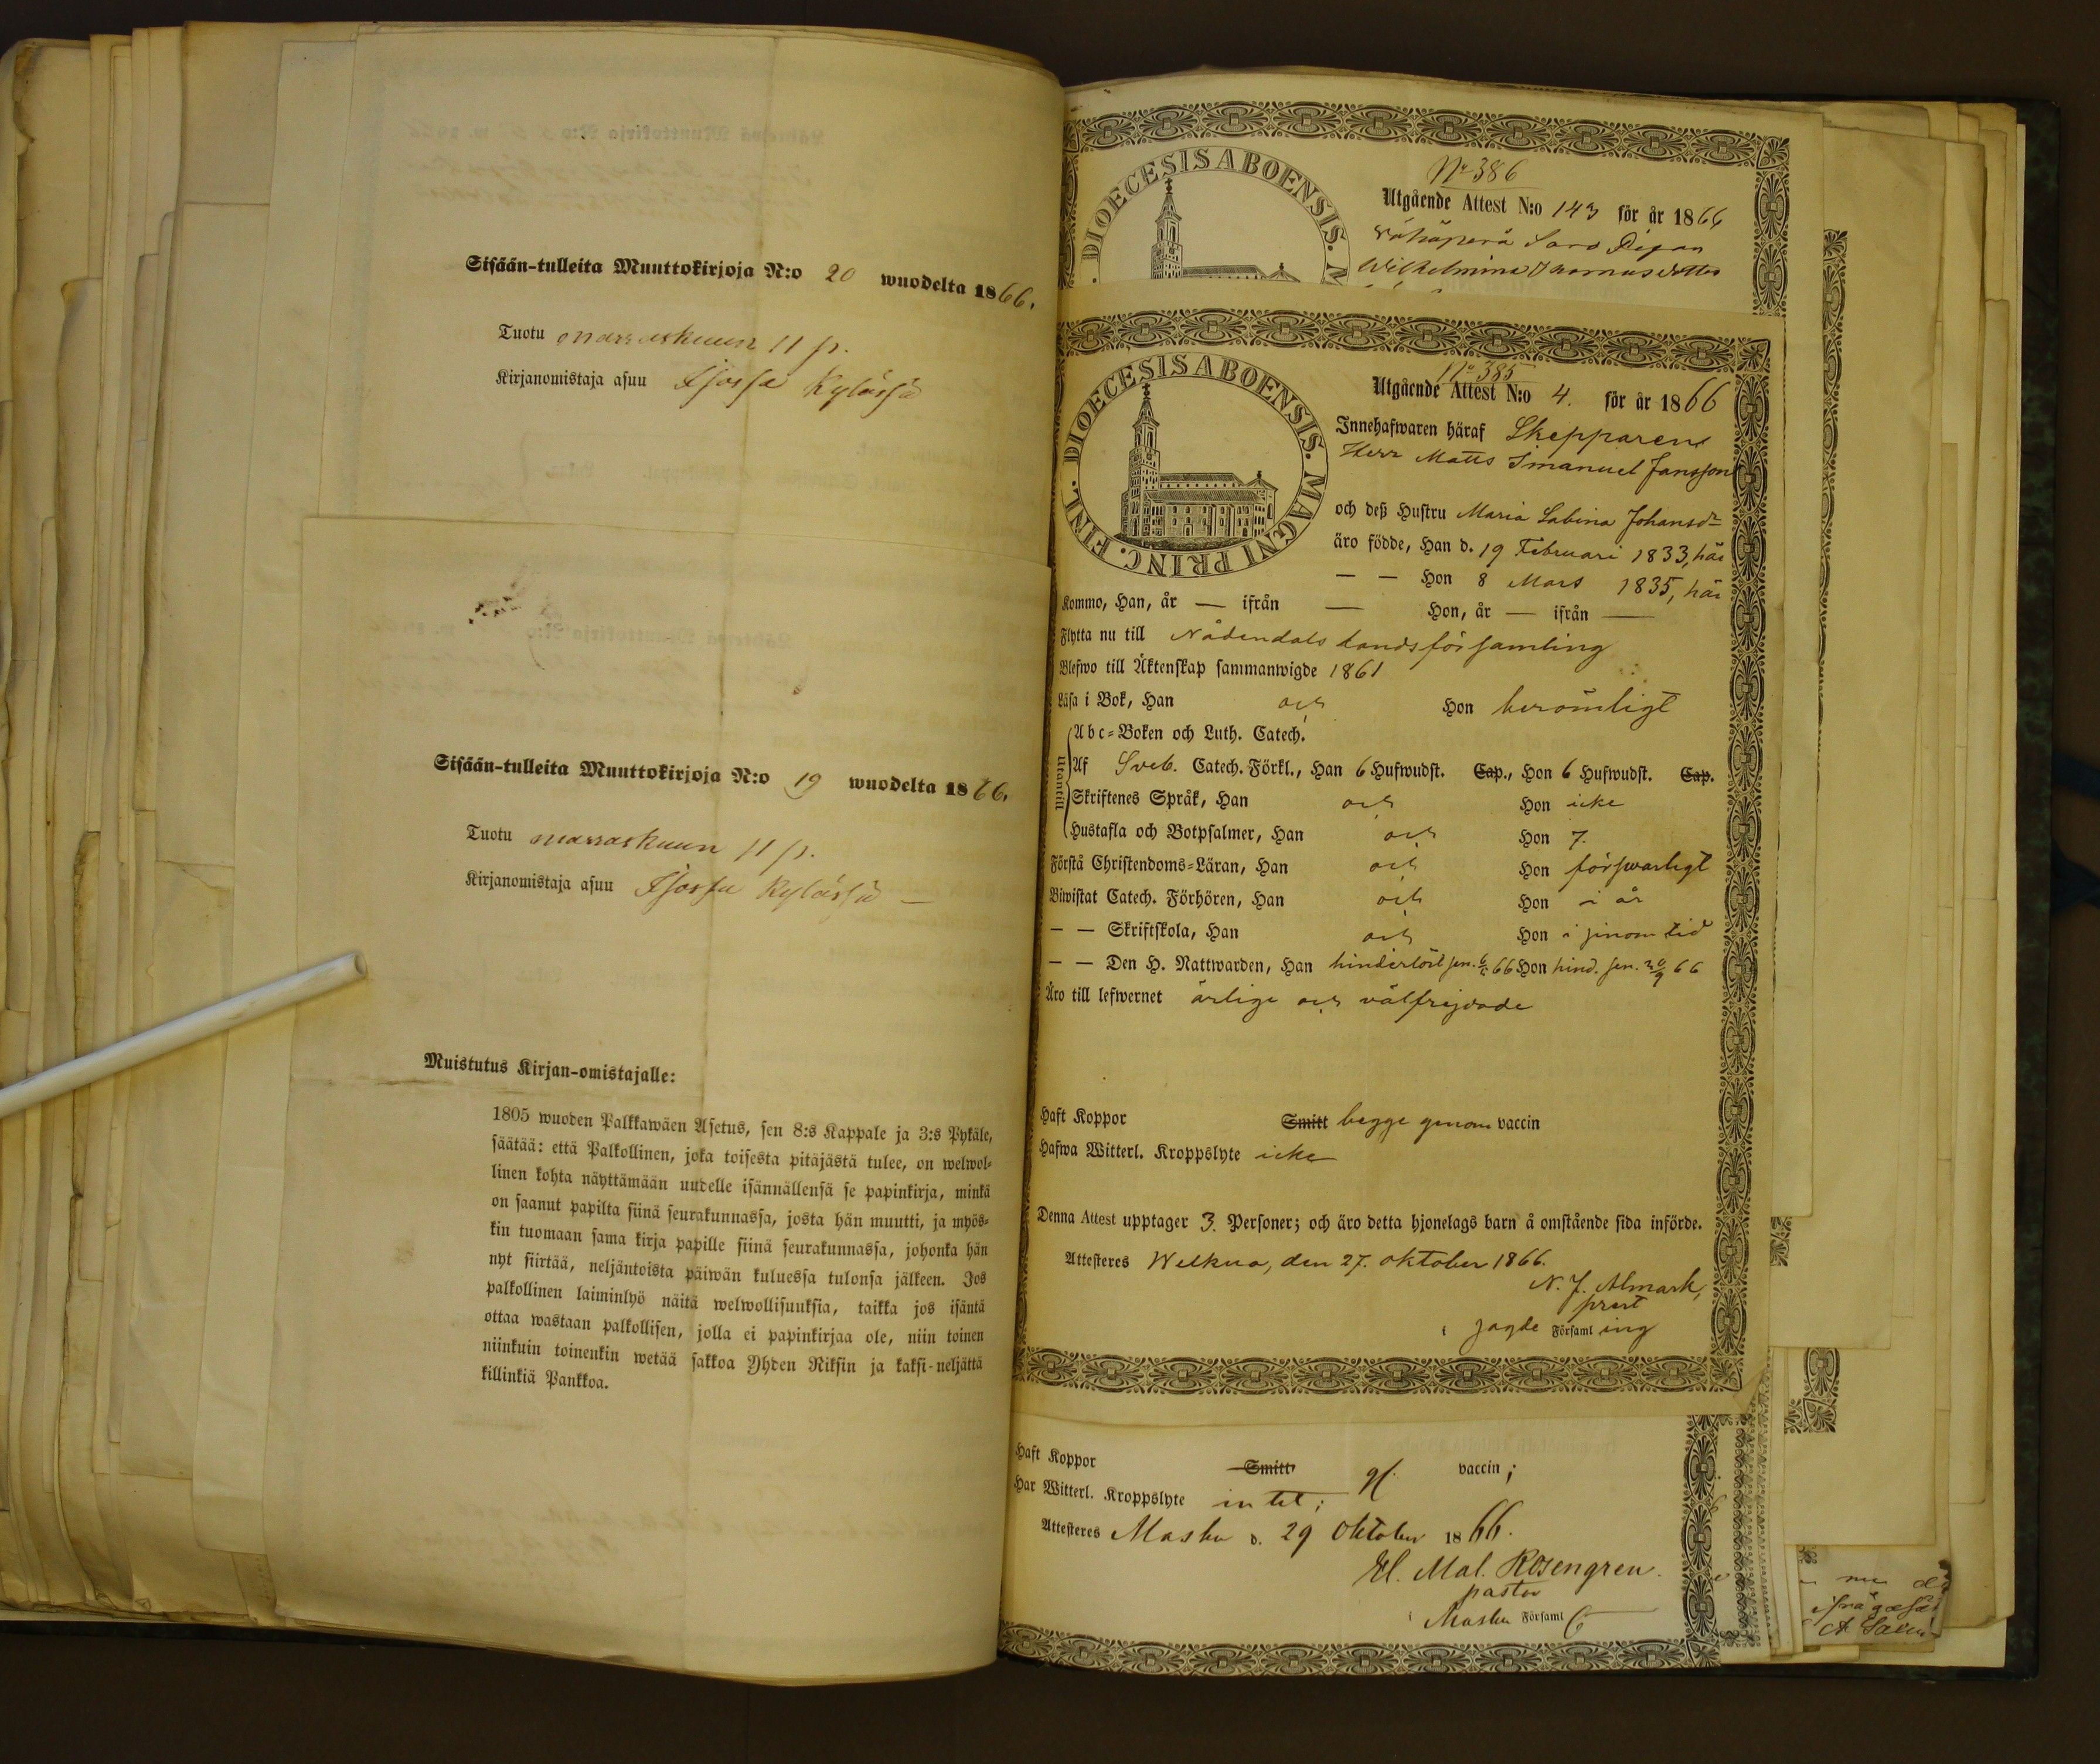 Sisään-tulleita Muuttokirjoja N:o 20 wuodelta 1866.
Tuotu marraskuun 11 p.
Kirjanomistaja asuu Isossa Kylässä
Sisään-tulleita Muuttokirjoja N:o 19 wuodelta 1866.
Tuotu marraskuun 11 p.
Kirjanomistaja asuu Isossa Kylässä —
Muistutus Kirjan-omistajalle:
1805 wuoden Palkkawäen Asetus, sen 8:s Kappale ja 3:s Pykäle,
säätää: että Palkollinen, joka toisesta pitäjästä tulee, on welwol=
linen kohta näyttämään uudelle isännällensä se papinkirja, minkä
on saanut papilta siinä seurakunnassa, josta hän muutti, ja myös=
kin tuomaan sama kirja papille siinä seurakunnassa, johonka hän
nyt siirtää, neljäntoista päiwän kuluessa tulonsa jälkeen. Jos
palkollinen laiminlyö näitä welwollisuuksia, taikka jos isäntä
ottaa wastaan palkollisen, jolla ei papinkirjaa ole, niin toinen
niinkuin toinenkin wetää sakkoa Yhden Riksin ja kaksi-neljättä
killinkiä Pankkoa.
DIOECESIS ABOENSIS. M
No 386
Utgående Attest N:o 143 för år 1866
Pigan
Wilhelmina Thomasdotter
DIOECESIS ABOENSIS. MAGNI PRINC. FINL.
No 385
Utgående Attest N:o 4. för år 1866
Innehafwaren häraf Skepparen
Herr Matts Imanuel Jansson
och deß Hustru Maria Sabina Johansdr
äro födde, Han d. 19 Februari 1833, här
— — Hon 8 Mars 1835, här
Kommo, Han, år — ifrån — Hon, år — ifrån —
Flytta nu till Nådendals landsförsamling
Blefwo till Äktenskap sammanwigde 1861
Läsa i Bok, Han och Hon berömligt
Utantill
Abc=Boken och Luth. Catech.
Af Sveb. Catech. Förkl., Han 6 Hufwudst. Cap., Hon 6 Hufwudst. Cap.
Skriftenes Språk, Han och Hon icke
Hustafla och Botpsalmer, Han och Hon 7.
Förstå Christendoms=Läran, Han och Hon försvarligt
Biwistat Catech. Förhören, Han och Hon i år
— — Skriftskola, Han och Hon i sinom tid
— — Den H. Nattwarden, Han hinderlöst sen. 66 Hon hind. sen. 30/9 66
Äro till lefwernet ärlige och välfrejdade
Haft Koppor Smitt begge genom vaccin
Hafwa Witterl. Kroppslyte icke
Denna Attest upptager 3. Personer; och äro detta hjonelags barn å omstående sida införde.
Attesteres Welkua, den 27. oktober 1866.
N. J. Almark,
prest
i sagde Församling
Haft Koppor Smitt gl. vaccin;
Har Witterl. Kroppslyte intet;
Attesteres Masku d. 29 Oktober 1866.
El. Mal. Rosengren.
pastor
i Masku Församl